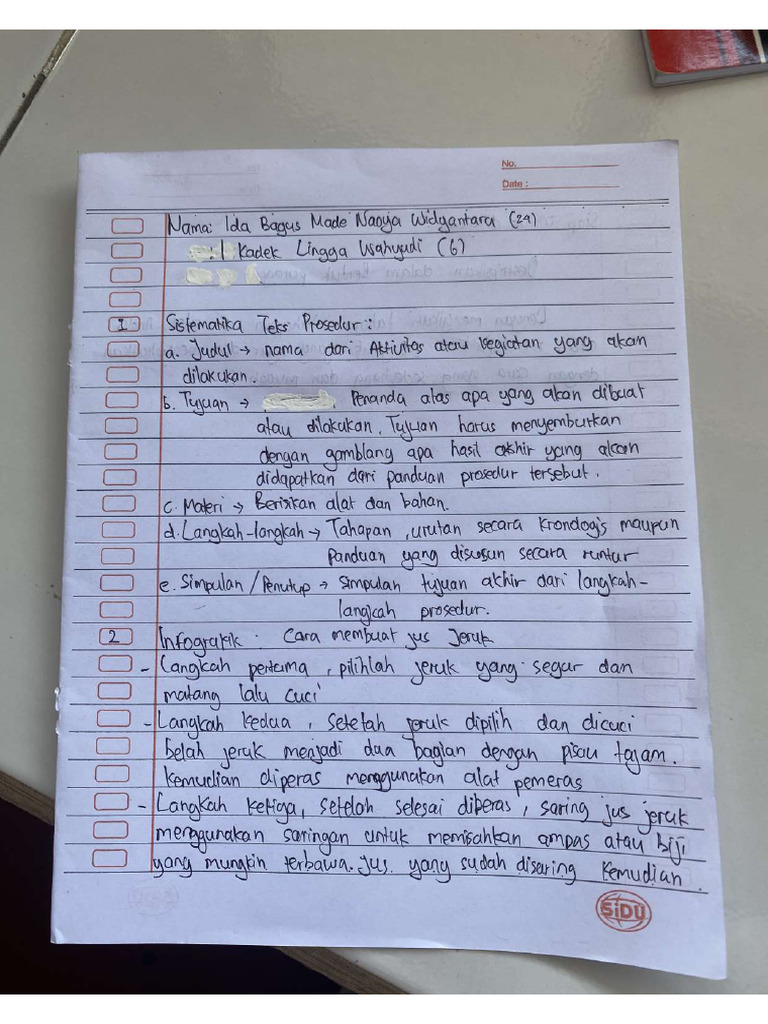 No.
Date :
Nama: Ida Bagus Made Nanja Widyantara (24)
: Kadek Lingga Wahyudi (6)
1 Sistematika Teks Prosedur :
a. Judul → nama dari Aktivitas atau kegiatan yang akan
dilakukan.
b. Tujuan → Penanda atas apa yang akan dibuat
atau dilakukan. Tujuan harus menyemburkan
dengan gamblang apa hasil akhir yang akan
didapatkan dari panduan prosedur tersebut.
c. Materi → Berisikan alat dan bahan.
d. Langkah-langkah → Tahapan, urutan secara kronologis maupun
panduan yang disusun secara runtur
e. Simpulan / Penutup → Simpulan tujuan akhir dari langkah-
langkah prosedur.
2 Infografik : Cara membuat jus Jeruk
- Langkah pertama, pilihlah jeruk yang segar dan
matang lalu cuci
- Langkah kedua, setelah jeruk dipilih dan dicuci
belah jeruk menjadi dua bagian dengan pisau tajam.
kemudian diperas menggunakan alat pemeras
- Langkah ketiga, setelah selesai diperas, saring jus jeruk
menggunakan saringan untuk memisahkan ampas atau biji
yang mungkin terbawa. Jus yang sudah disaring kemudian.
SiDU